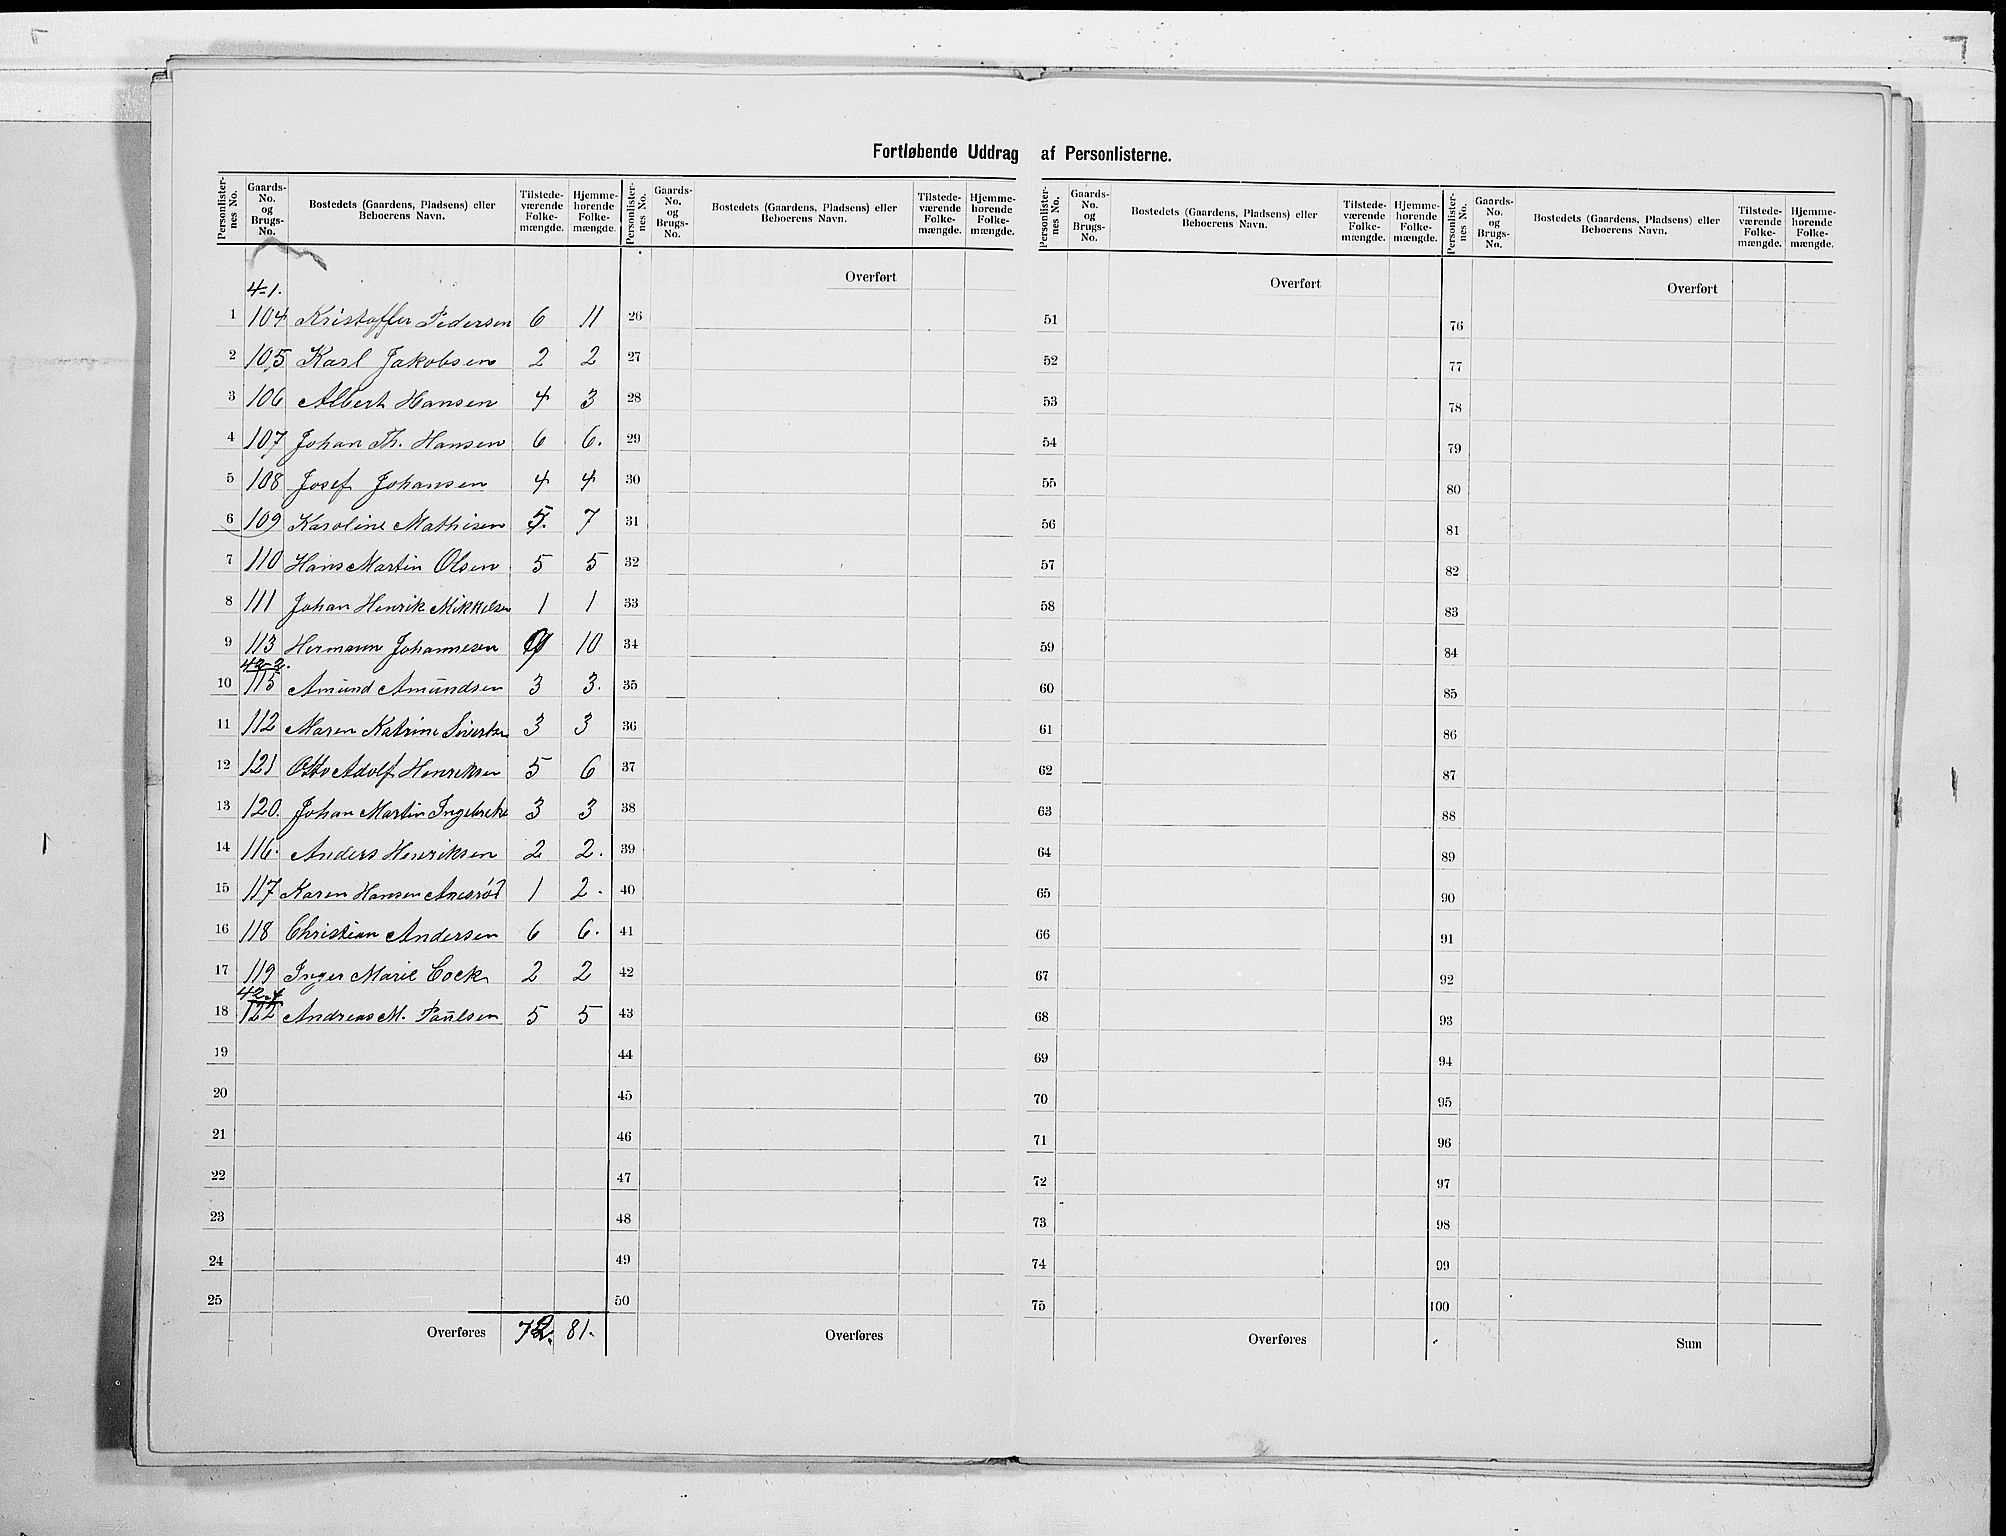 Fortløbende Uddrag af Personlisterne.
Personlister-nes No. Gaards-No. og Brugs-No. Bostedets (Gaardens, Pladsens) eller Beboerens Navn. Tilstede-værende Folke-mængde. Hjemme-hørende Folke-mængde.
4-1.
1 104 Kristoffer Pedersen 6 11
2 105 Karl Jakobsen 2 2
3 106 Albert Hansen 4 3
4 107 Johan Th. Hansen 6 6.
5 108 Josef Johansen 4 4
6 109 Karoline Mathisen 5. 7
7 110 Hans Martin Olsen 5 5
8 111 Johan Henrik Mikkelsen 1 1
9 113 Hermann Johannesen 9 10
42-2.
10 115 Amund Amundsen 3 3.
11 112 Maren Katrine 3 3
12 121 Otto Adolf Henriksen 5 6
13 120. Johan Martin 3 3
14 116. Anders Henriksen 2 2.
15 117 Karen Hansen 1 2.
16 118 Christian Andersen 6 6.
17 119 Inger Marie Cock 2 2
42.4
18 122 Andreas M. Paulsen 5 5
19
20
21
22
23
24
25
Overføres 72. 81.
Personlister-nes No. Gaards-No. og Brugs-No. Bostedets (Gaardens, Pladsens) eller Beboerens Navn. Tilstede-værende Folke-mængde. Hjemme-hørende Folke-mængde.
Overført
26
27
28
29
30
31
32
33
34
35
36
37
38
39
40
41
42
43
44
45
46
47
48
49
50
Overføres
Personlister-nes No. Gaards-No. og Brugs-No. Bostedets (Gaardens, Pladsens) eller Beboerens Navn. Tilstede-værende Folke-mængde. Hjemme-hørende Folke-mængde.
Overført
51
52
53
54
55
56
57
58
59
60
61
62
63
64
65
66
67
68
69
70
71
72
73
74
75
Overføres
Personlister-nes No. Gaards-No. og Brugs-No. Bostedets (Gaardens, Pladsens) eller Beboerens Navn. Tilstede-værende Folke-mængde. Hjemme-hørende Folke-mængde.
Overført
76
77
78
79
80
81
82
83
84
85
86
87
88
89
90
91
92
93
94
95
96
97
98
99
100
Sum